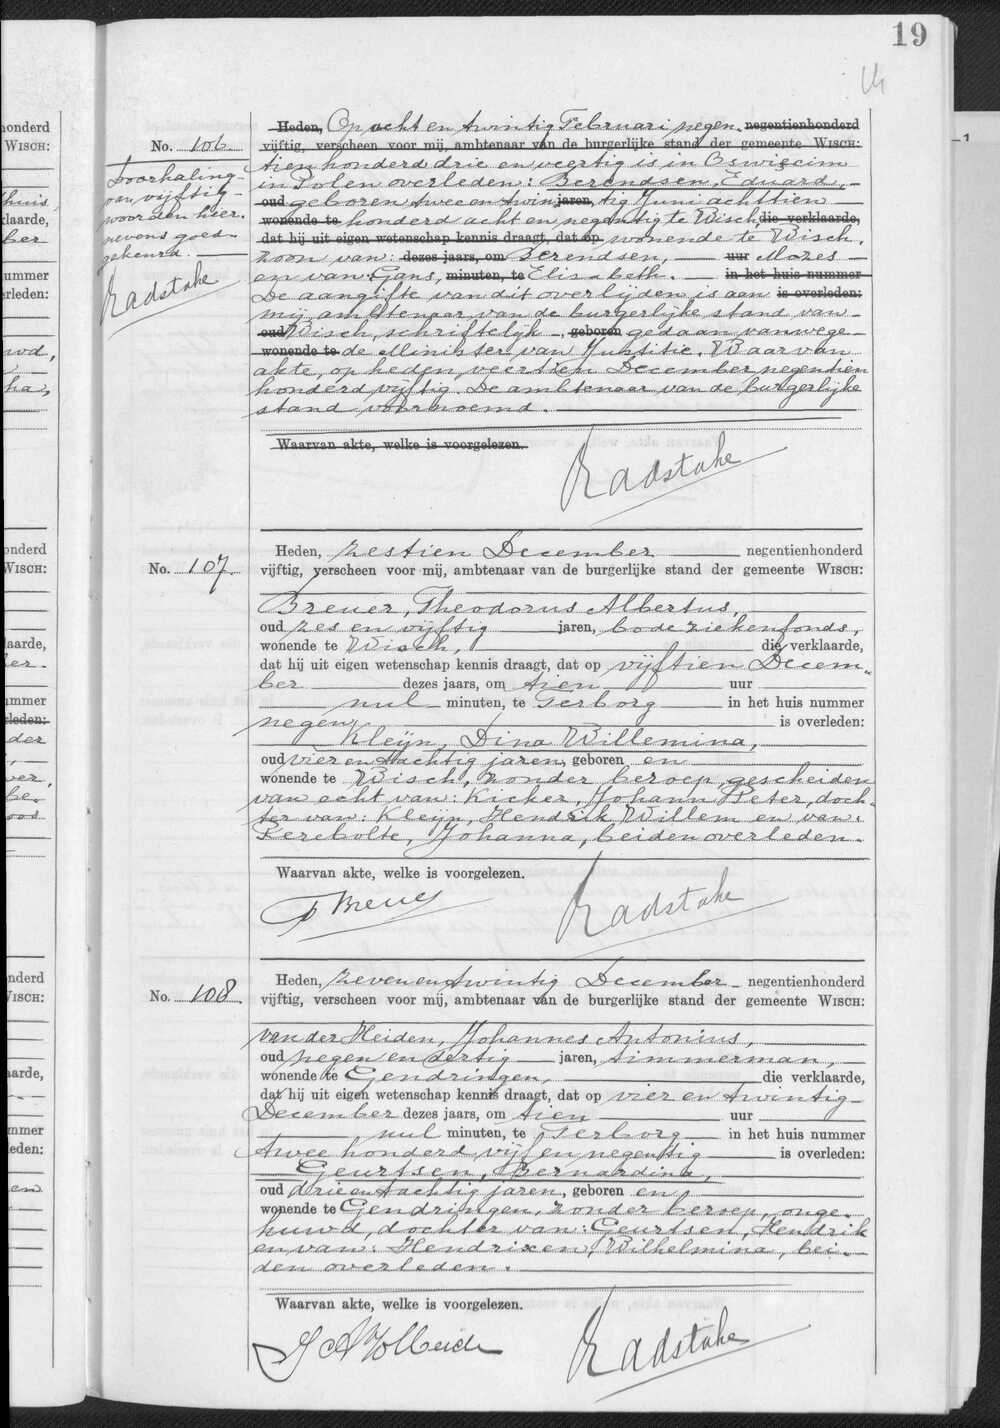 19
No. 106
Doorhaling
van vijftig
woorden hier-
nevens goed-
gekeurd.
Radstake
Heden, Op acht en twintig Februari negen- negentienhonderd
vijftig, verscheen voor mij, ambtenaar van de burgerlijke stand der gemeente WISCH:
tienhonderd drie en veertig is in Oswiecim
in Polen overleden: Berendsen, Eduard,
oud geboren twee en twin jaren, tig Juni achttien
wonende te honderd acht en negentig te Wisch, die verklaarde,
dat hij uit eigen wetenschap kennis draagt, dat op wonende te Wisch,
zoon van: dezes jaars, om Berendsen, uur Mozes
en van: Gans, minuten, te Elisabeth. in het huis nummer
De aangifte van dit overlijden is aan is overleden:
mij, ambtenaar van de burgerlijke stand van
oud Wisch, schriftelijk geboren gedaan vanwege
wonende te de Minister van Justitie. Waarvan
akte, op heden, veertien December negentien
honderd vijftig. De ambtenaar van de burgerlijke
stand voornoemd.
Waarvan akte, welke is voorgelezen.
Radstake
No. 107.
Heden, zestien December negentienhonderd
vijftig, verscheen voor mij, ambtenaar van de burgerlijke stand der gemeente WISCH:
Breuer, Theodorus Albertus,
oud zes en vijftig jaren, bode ziekenfonds,
wonende te Wisch, die verklaarde,
dat hij uit eigen wetenschap kennis draagt, dat op vijftien Decem-
ber dezes jaars, om tien uur
nul minuten, te Terborg in het huis nummer
negen is overleden:
Kleijn, Dina Willemina,
oud vier en tachtig jaren, geboren en
wonende te Wisch, zonder beroep, gescheiden
van echt van: Kicker, Johann Peter, doch-
ter van: Kleyn, Hendrik Willem en van:
Berebolte, Johanna, beiden overleden.
Waarvan akte, welke is voorgelezen.
Breuer
Radstake
No. 108.
Heden, zeven en twintig December negentienhonderd
vijftig, verscheen voor mij, ambtenaar van de burgerlijke stand der gemeente WISCH:
van der Heiden, Johannes Antonius,
oud negen en dertig jaren, timmerman,
wonende te Gendringen, die verklaarde,
dat hij uit eigen wetenschap kennis draagt, dat op vier en twintig
December dezes jaars, om tien uur
nul minuten, te Terborg in het huis nummer
twee honderd vijf en negentig is overleden:
Geurtsen, Bernardina,
oud drie en tachtig jaren, geboren en
wonende te Gendringen, zonder beroep, onge-
huwd, dochter van: Geurtsen, Hendrik
en van: Hendrixen, Wilhelmina, bei-
den overleden.
Waarvan akte, welke is voorgelezen.
Radstake